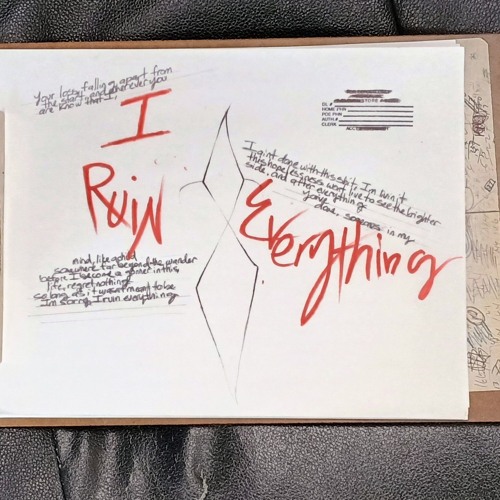 Your lost, falling apart from
the start, and wherever you
are know that I,
I
RuiN
Everything
STORE #
DL #
HOME PH#
POE PH#
AUTH #
CLERK
I aint done with this shit, I'm livin it
this hopelessness wont live to see the brighter
side, and after everything
youve
done, so in my
mind, like a child
somewhere far beyond the wonder
begin I become a goner in this
life, regret nothing
so long as it wasn't meant to be
Im sorry, I ruin everything